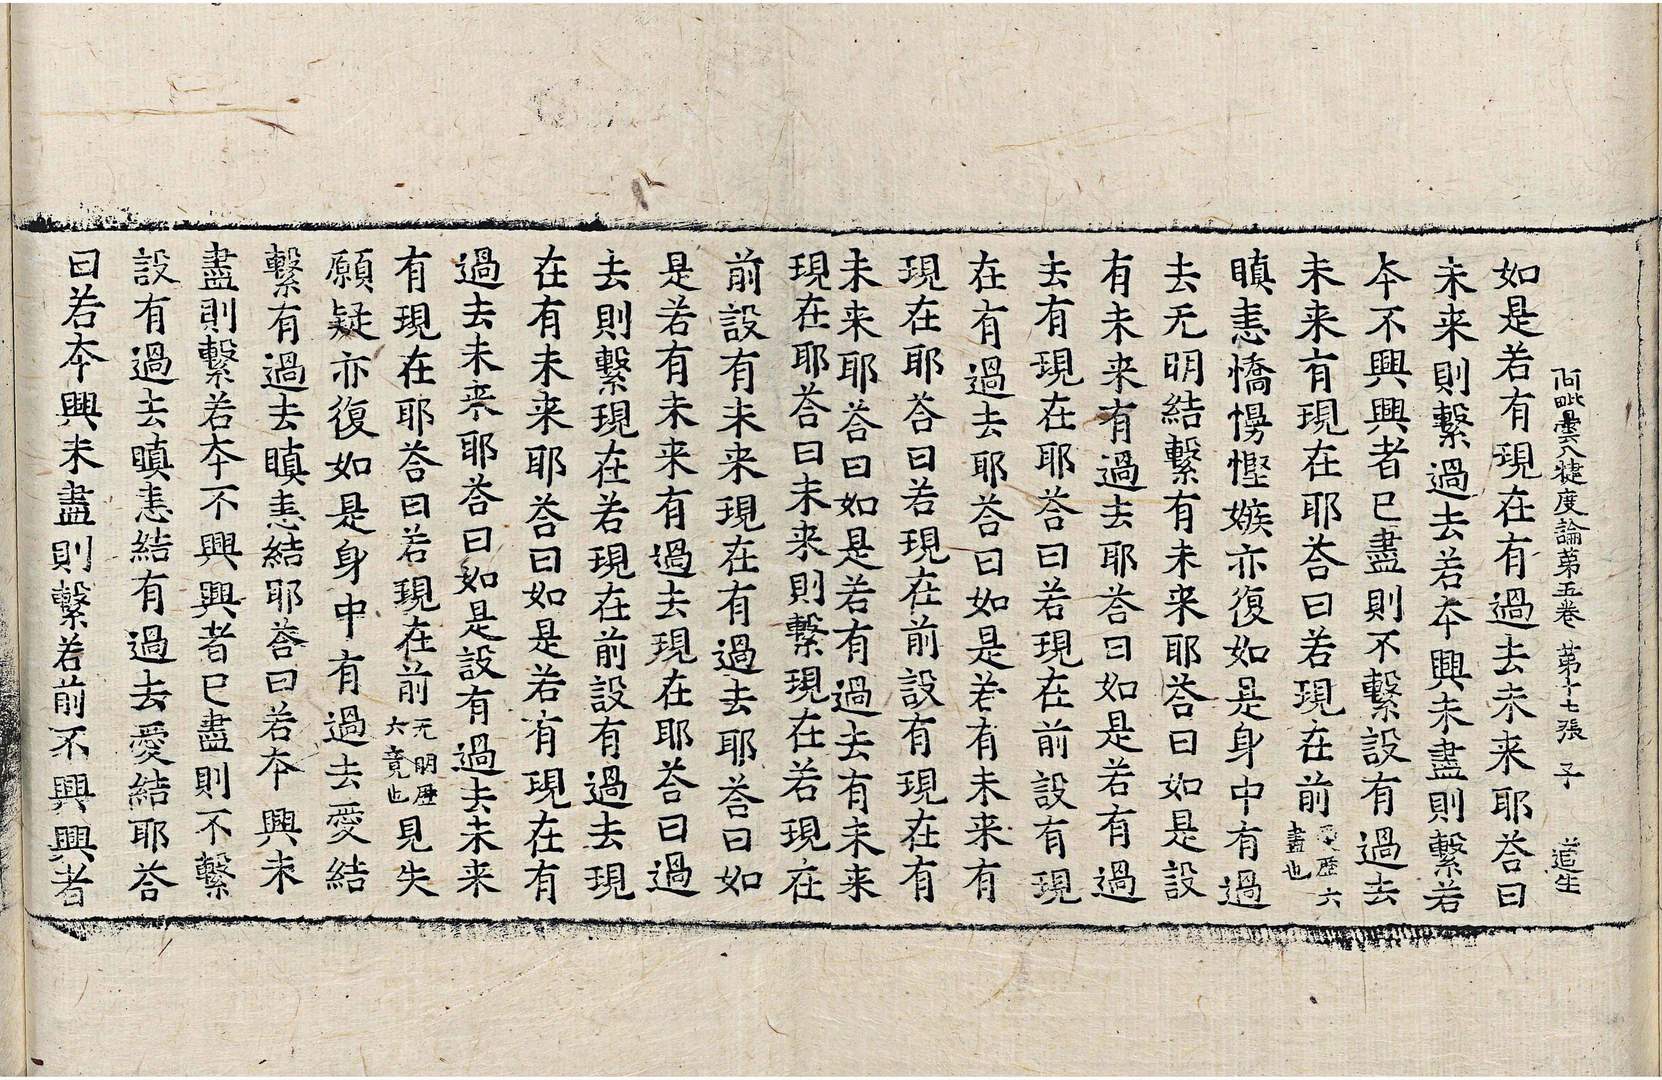 阿毗曇八犍度論第五卷 第十七張 子 道生
如是若有現在有過去未来耶荅曰
未来則繫過去若夲興未盡則繫若
夲不興興者已盡則不繫設有過去
未来有現在耶荅曰若現在前愛歷六盡也
瞋恚憍慢慳嫉亦復如是身中有過
去无明結繫有未来耶荅曰如是設
有未来有過去耶荅曰如是若有過
去有現在耶荅曰若現在前設有現
在有過去耶荅曰如是若有未来有
現在耶荅曰若現在前設有現在有
未来耶荅曰如是若有過去有未来
現在耶荅曰未来則繫現在若現在
前設有未来現在有過去耶荅曰如
是若有未来有過去現在耶荅曰過
去則繫現在若現在前設有過去現
在有未来耶荅曰如是若有現在有
過去未来耶荅曰如是設有過去未来
有現在耶荅曰若現在前无明歷六竟也見失
願疑亦復如是身中有過去愛結
繫有過去瞋恚結耶荅曰若夲興未
盡則繫若夲不興興者已盡則不繫
設有過去瞋恚結有過去愛結耶荅
曰若夲興未盡則繫若前不興興者